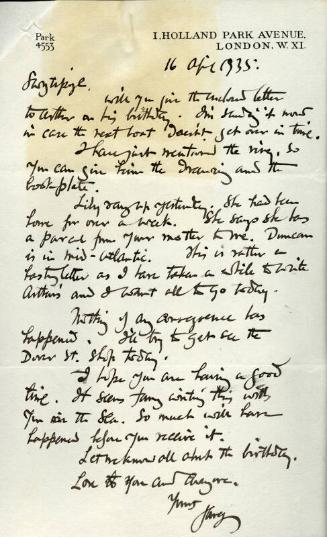 Park
4553
1. HOLLAND PARK AVENUE.
LONDON. W. XI.
16 Apl 1935.
will you give the enclosed letter
to Arthur on his birthday. I'm sending it now
in case the next boat doesn't get over in time.
I have just mentioned the ring, so
you can give him the drawing and the
bookplate.
Lily rang up yesterday. She had been
here for over a week. She says she has
a parcel from your mother to me. Duncan
is in mid-atlantic. This is rather a
hasty letter as I have taken a while to write
Arthur's and I want all to go today.
Nothing of any consequence has
happened. I'll try to get to see the
Dover St. Ship today.
I hope you are having a good
time. It seems funny writing this with
you on the sea. So much will have
happened before you receive it.
Let me know all about the birthday.
Love to you and everyone.
Yours